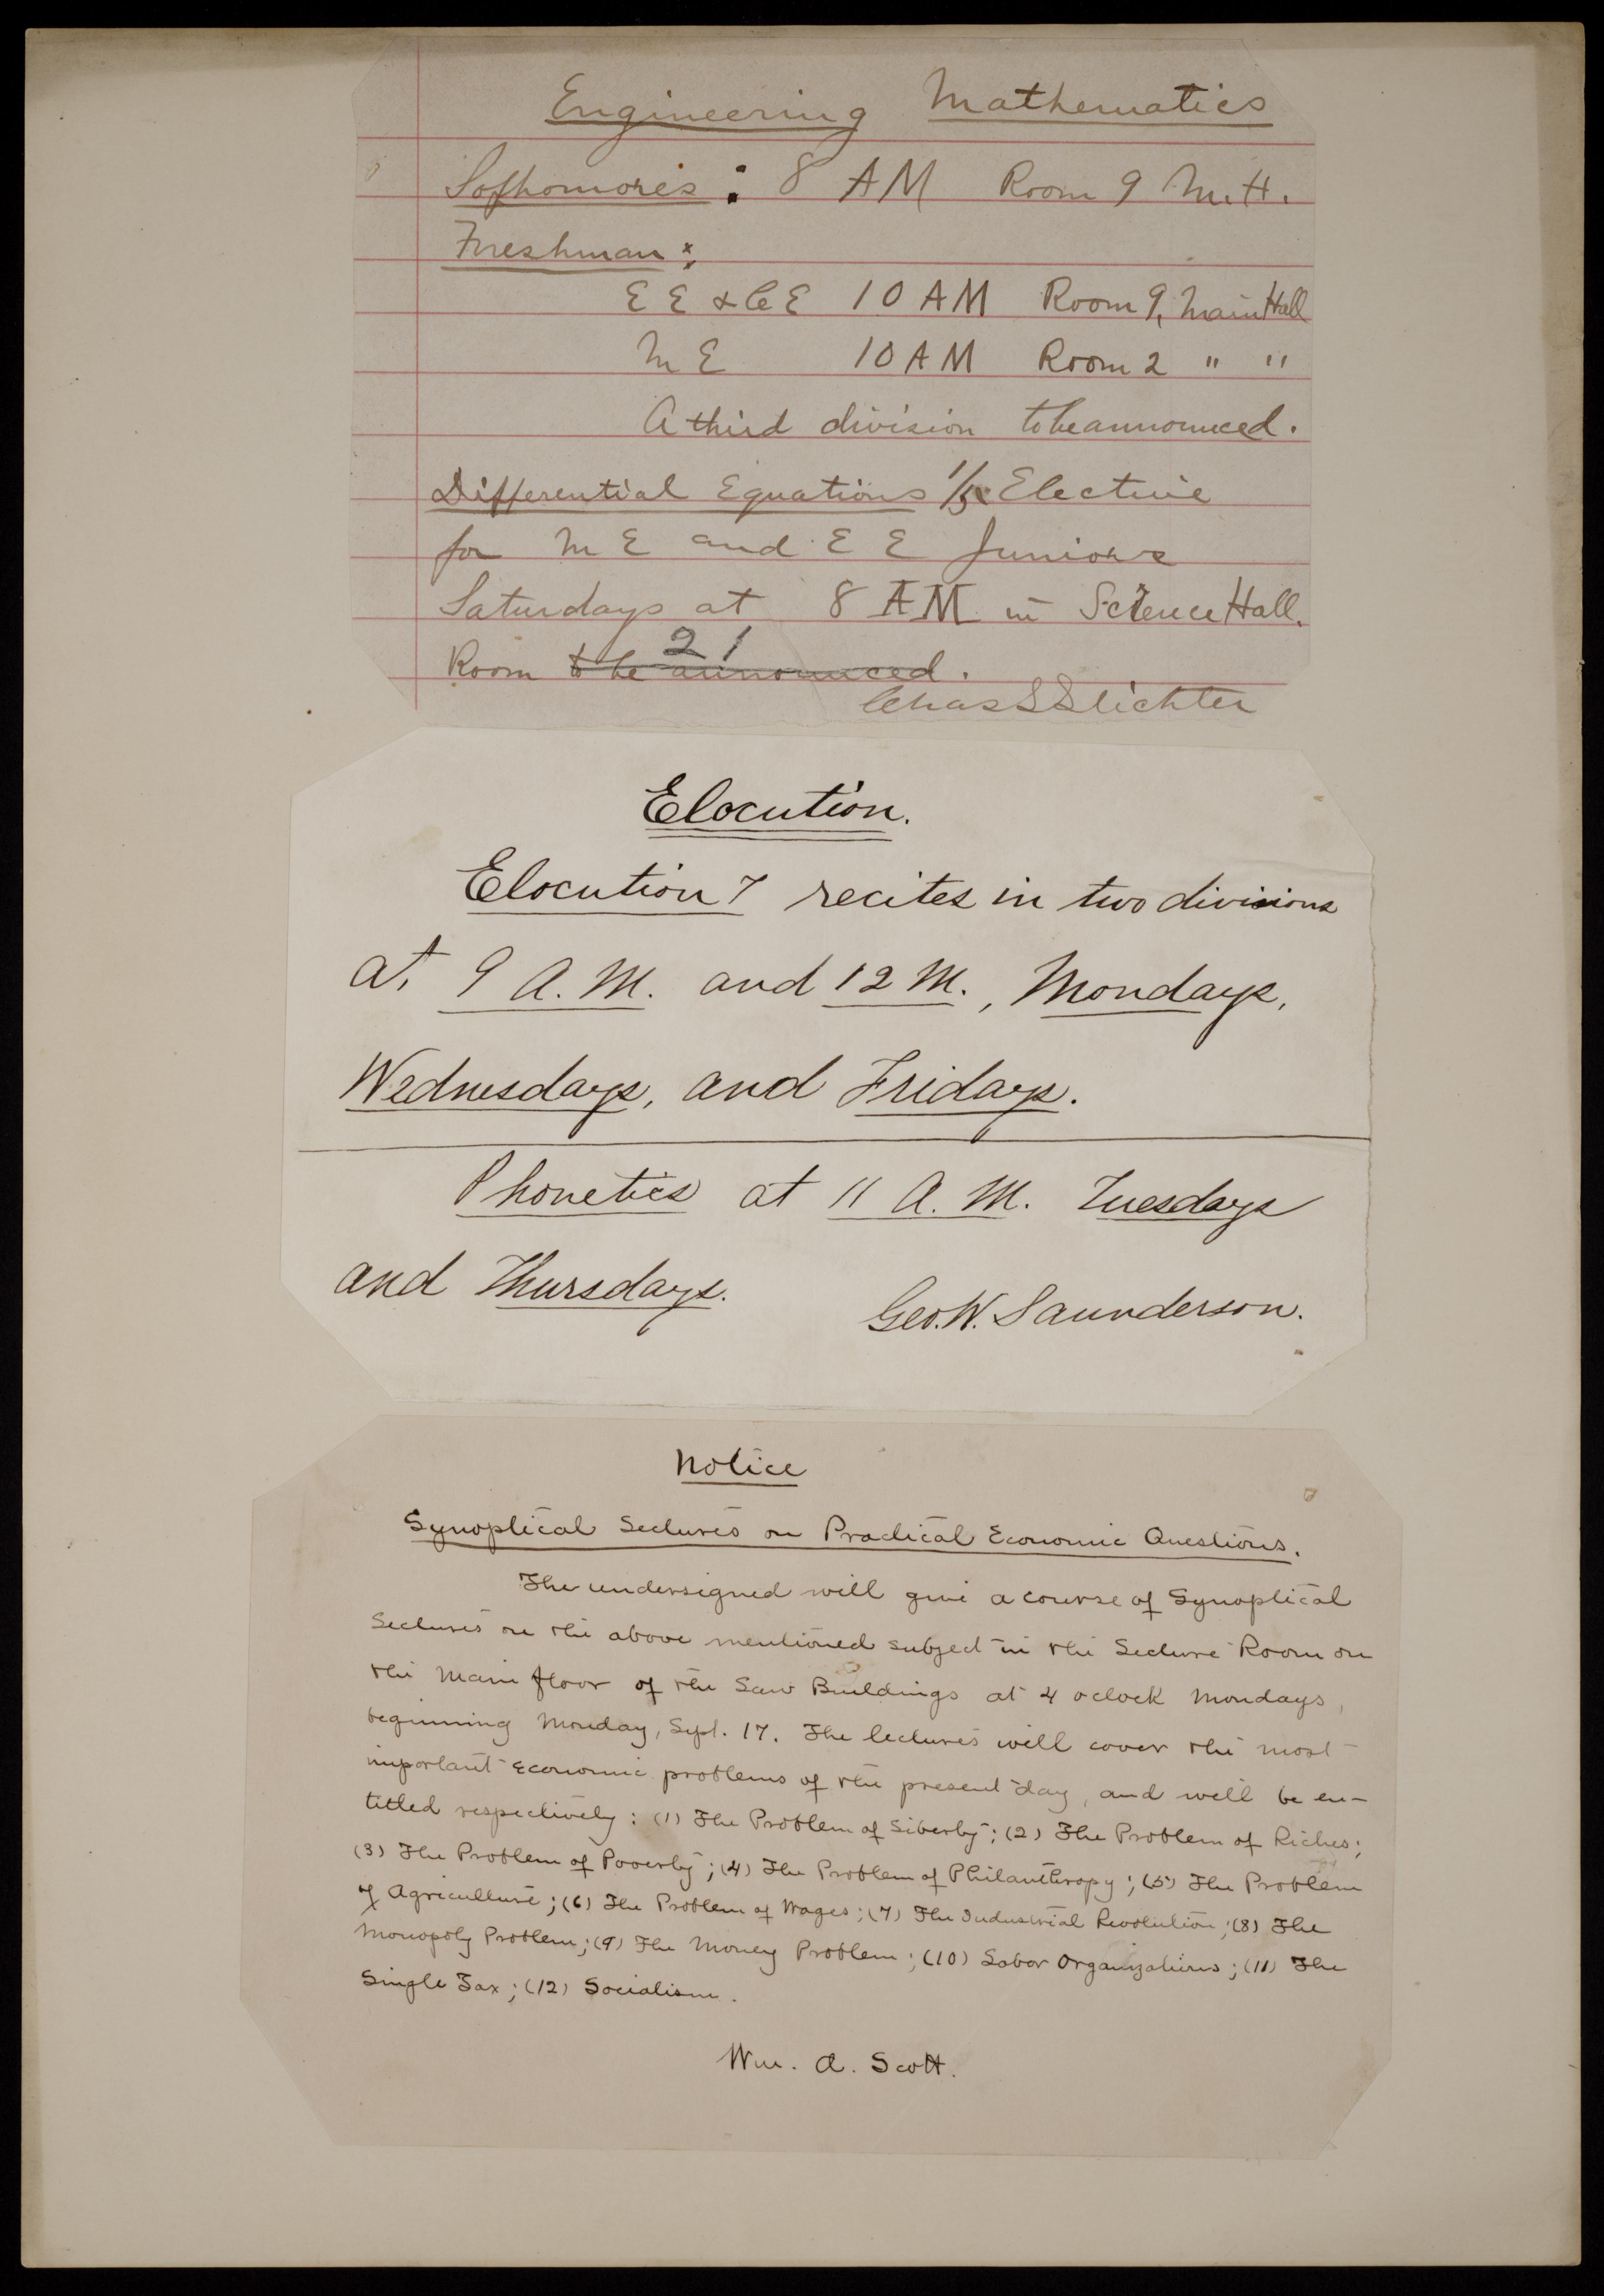 Engineering Mathematics
Sophomores: 8 AM Room 9 M.H.
Freshman:
E E & C E 10 AM Room 9, Main Hall
M E 10 AM Room 2 " "
A third division to be announced.
Differential Equations 1/5 Elective
for M E and E E Juniors
Saturdays at 8 AM in Science Hall.
21
Room to be announced.
Chas S Slichter
Elocution.
Elocution 7 recites in two divisions
at 9 A.M. and 12 M., Mondays,
Wednesdays, and Fridays.
Phonetics at 11 A.M. Tuesdays
and Thursdays.
Geo. W. Saunderson.
Notice
Synoptical Lectures on Practical Economic Questions.
The undersigned will give a course of Synoptical
Lectures on the above mentioned subject in the Lecture Room on
the main floor of the Law Buildings at 4 oclock Mondays,
beginning Monday, Sept. 17. The lectures will cover the most
important Economic problems of the present day, and will be en-
titled respectively: (1) The Problem of Liberty; (2) The Problem of Riches;
(3) The Problem of Poverty; (4) The Problem of Philanthropy; (5) The Problem
of Agriculture; (6) The Problem of Wages; (7) The Industrial Revolution; (8) The
Monopoly Problem; (9) The Money Problem; (10) Labor Organizations; (11) The
Single Tax; (12) Socialism.
Wm. A. Scott.